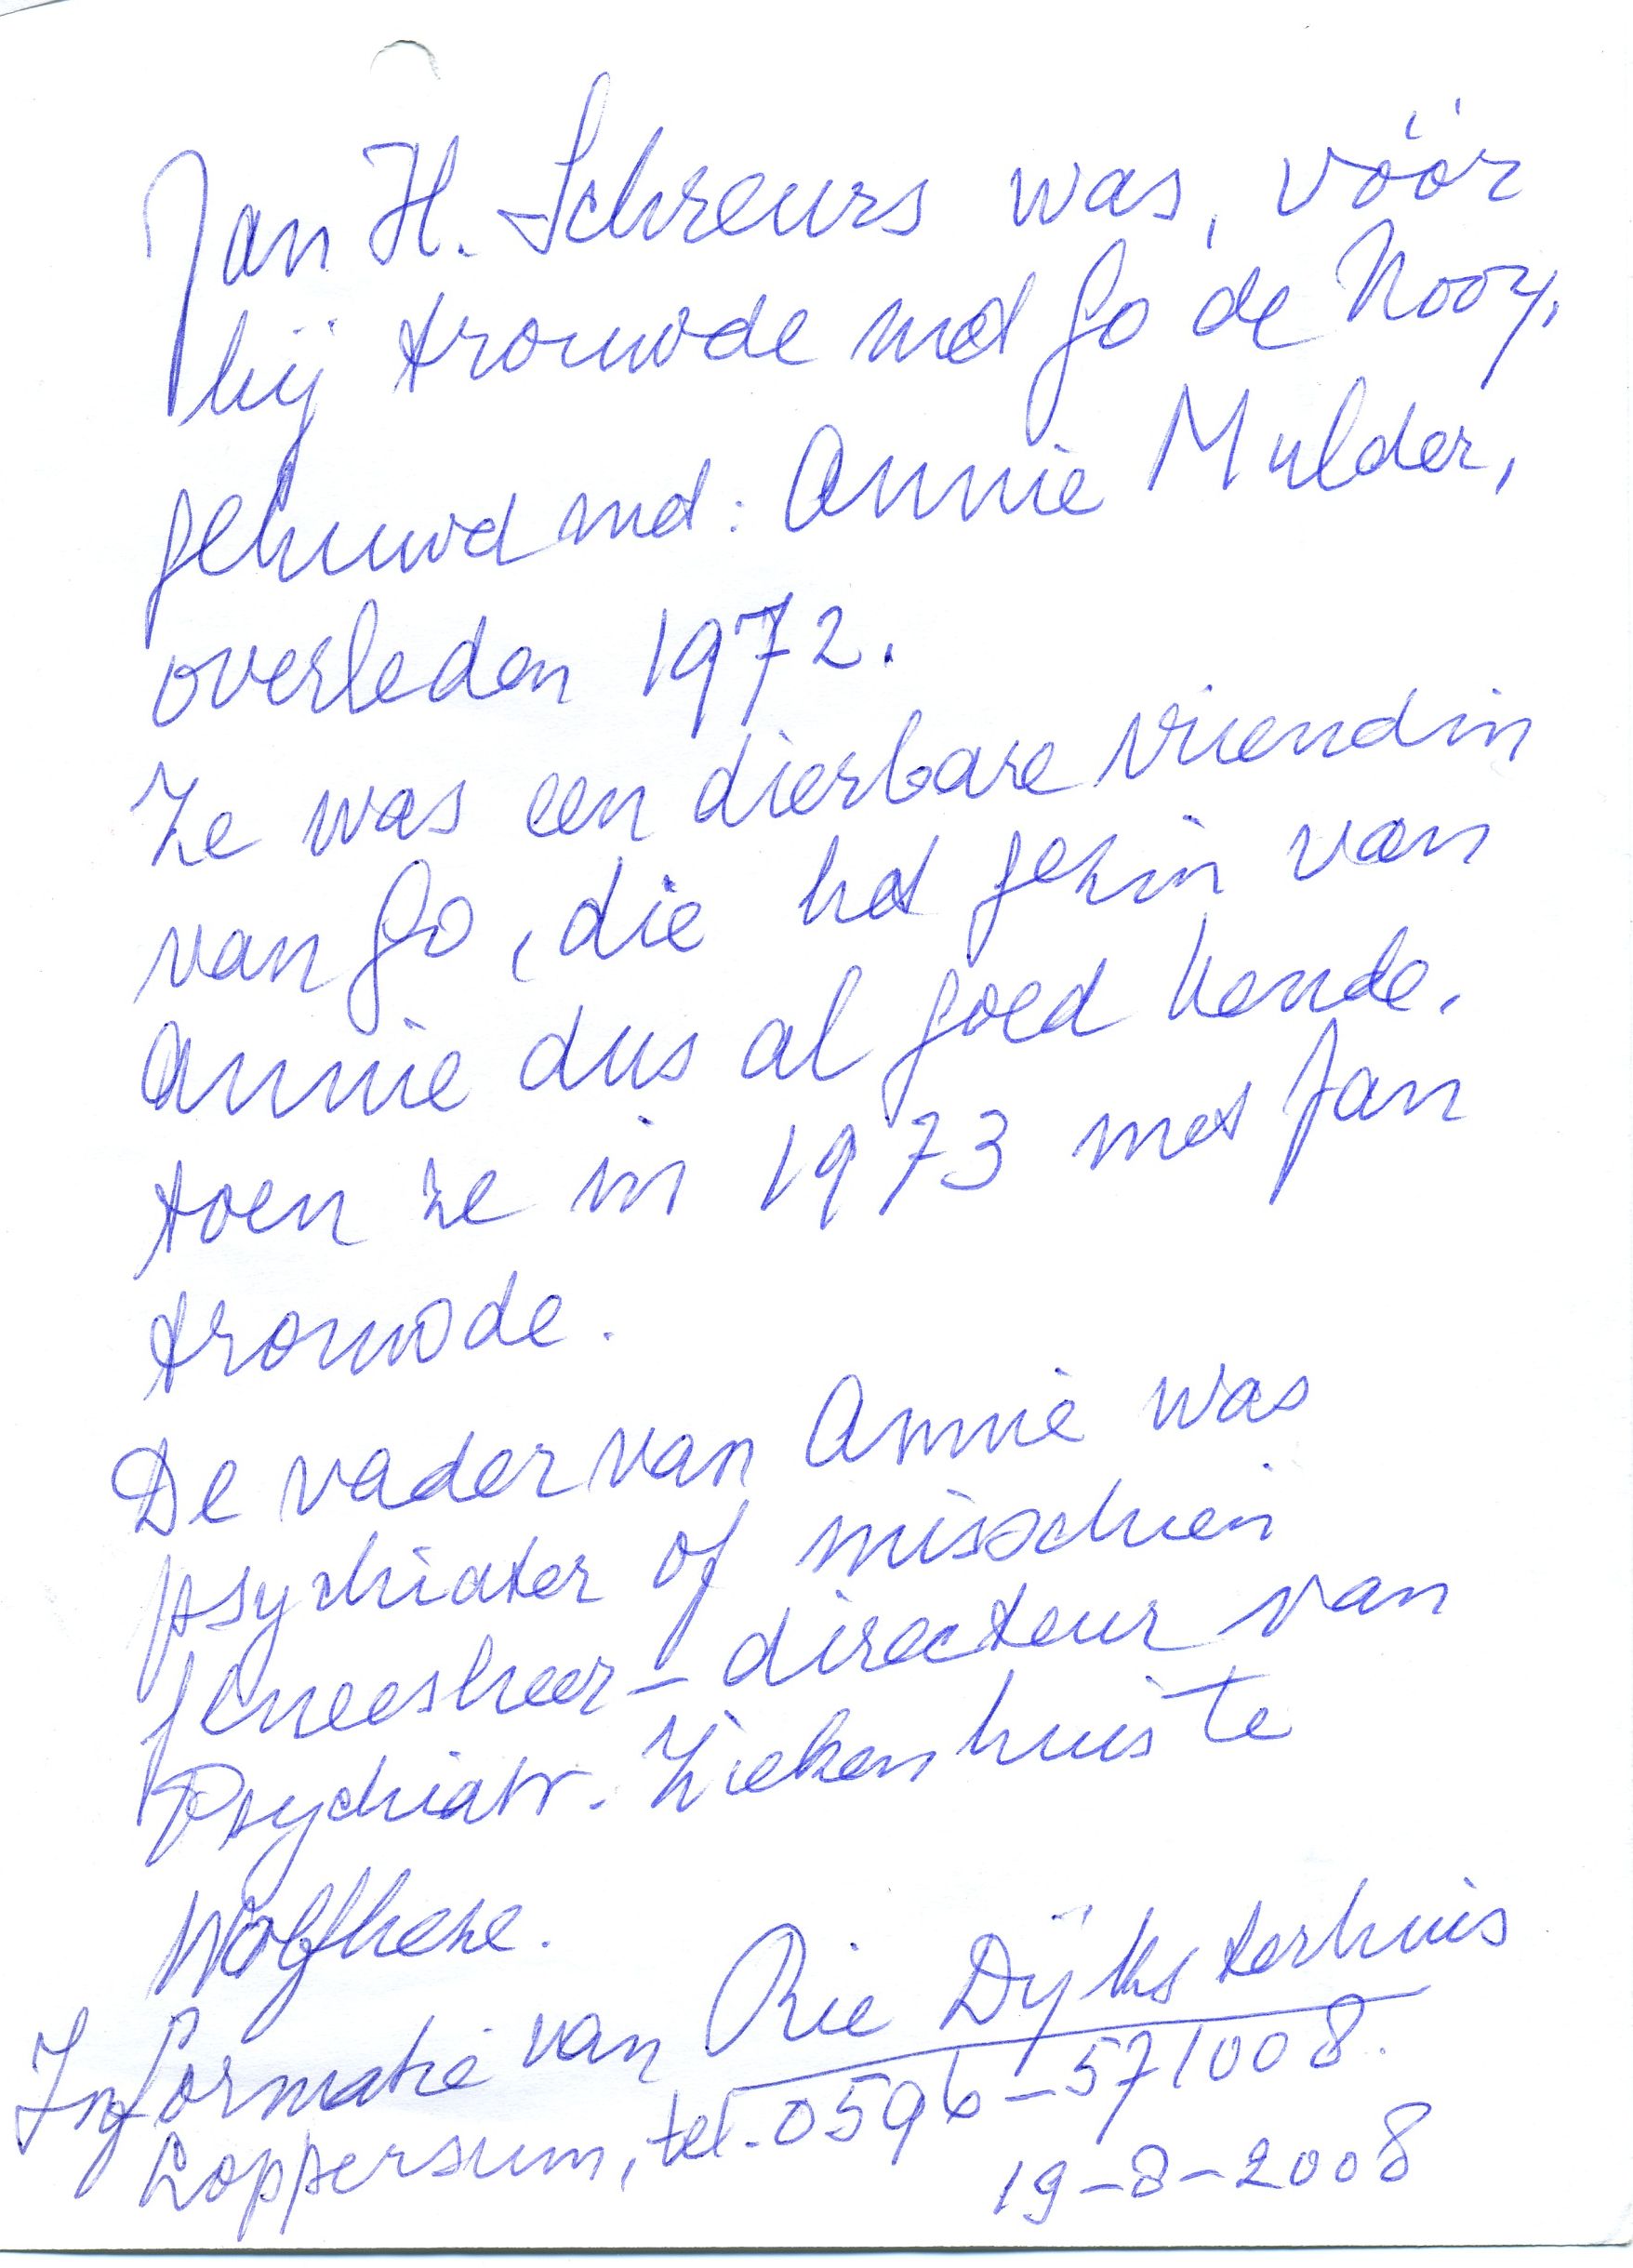 Jan H. Schreurs was, vóór
hij trouwde met Jo de Nooy,
gehuwd met: Annie Mulder,
overleden 1972.
Ze was een dierbare vriendin
van Jo, die het gezin van
Annie dus al goed kende,
toen ze in 1973 met Jan
trouwde.
De vader van Annie was
psychiater of misschien
geneesheer-directeur van
Psychiatr. Ziekenhuis te
Wolfheze.
Informatie van Rie Dijksterhuis
Loppersum, tel. 0596-571008.
19-8-2008